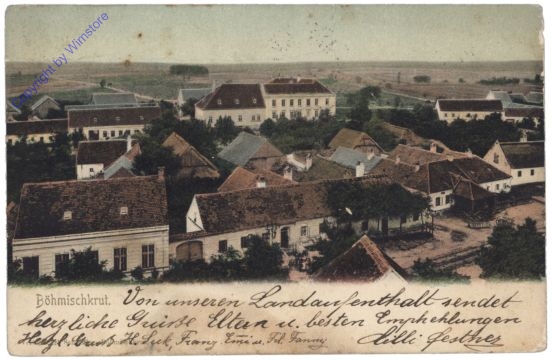 Copyright by Wimstore
Böhmischkrut.
Von unseren Landaufenthalt sendet
herzliche Grüsse Eltern u. besten Empfehlungen
Herzl. Gruß Franz Fanny Lilli